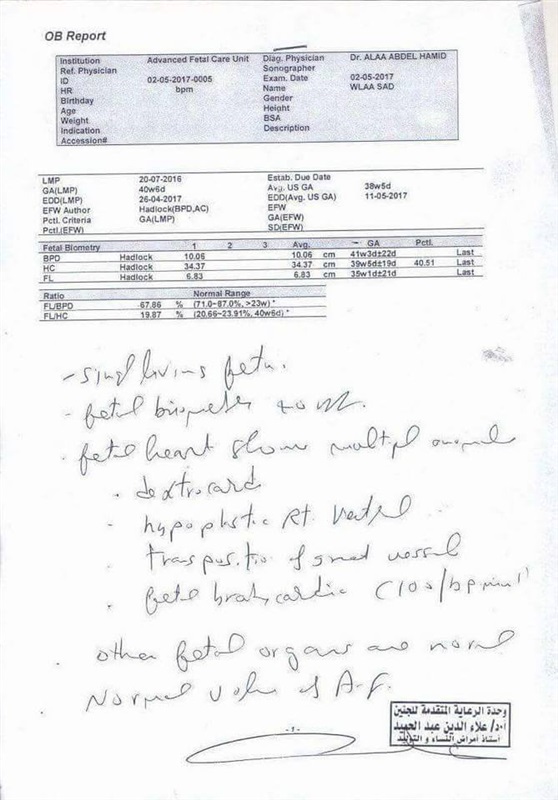 OB Report
Institution Advanced Fetal Care Unit Diag. Physician Dr. ALAA ABDEL HAMID
Ref. Physician Sonographer
ID 02-05-2017-0005 Exam. Date 02-05-2017
HR bpm Name WLAA SAD
Birthday Gender
Age Height
Weight BSA
Indication Description
Accession#
LMP 20-07-2016 Estab. Due Date
GA(LMP) 40w6d Avg. US GA 38w5d
EDD(LMP) 26-04-2017 EDD(Avg. US GA) 11-05-2017
EFW Author Hadlock(BPD,AC) EFW
Pctl. Criteria GA(LMP) GA(EFW)
Pctl.(EFW) SD(EFW)
Fetal Biometry 1 2 3 Avg. GA Pctl.
BPD Hadlock 10.06 10.06 cm 41w3d±22d Last
HC Hadlock 34.37 34.37 cm 39w5d±19d 40.51 Last
FL Hadlock 6.83 6.83 cm 35w1d±21d Last
Ratio Normal Range
FL/BPD 67.86 % (71.0~87.0%, >23w) *
FL/HC 19.87 % (20.66~23.91%, 40w6d) *
- Singl living fetu.
- fetal 40
- fetal heart show multipl
. dextrocard
. hypoplastic Rt. Ventrl
. transpositio of great vessel
. fetal bradycardia (100/bpmin)
. other fetal organs are normal
. Normal volum of A.F.
وحدة الرعاية المتقدمة للجنين
أ.د/ علاء الدين عبد الحميد
أستاذ أمراض النساء و التوليد
-1-